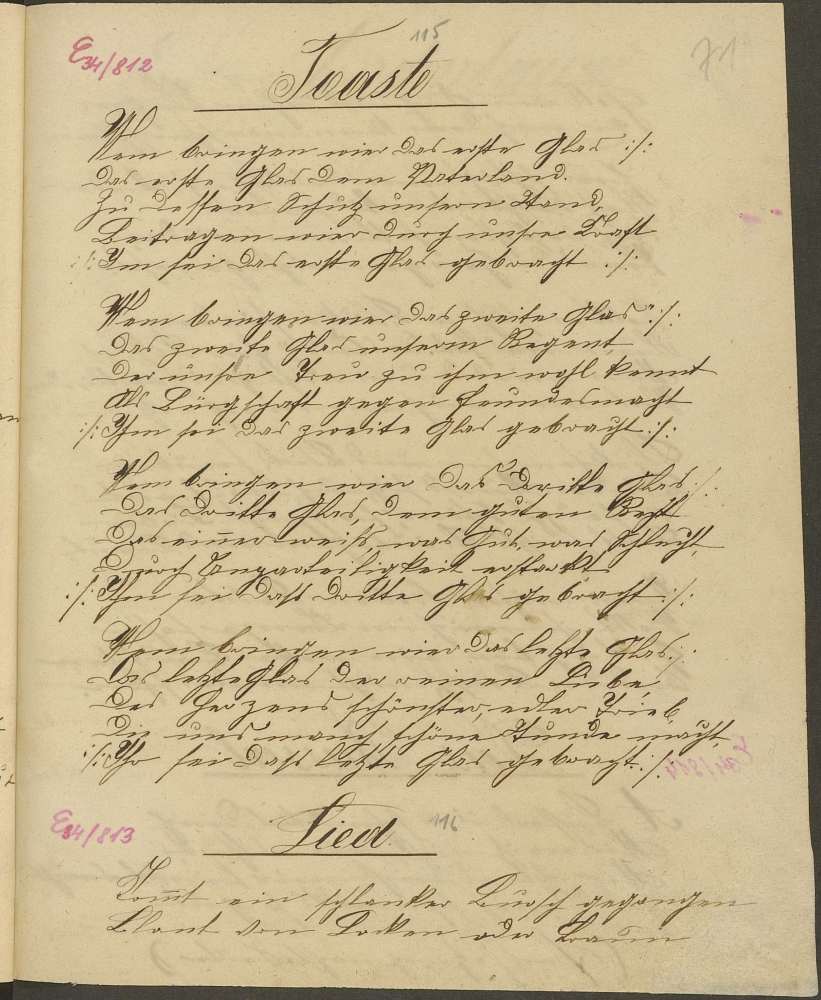 E34/812
115
71
Toaste
Wem bringen wier das erste Glas :/:
Das erste Glas dem Vaterland.
Zu dessen Schutz unsern Stand,
Beitragen wier durch unsre Kraft
:/: Im sei das erste Glas gebracht :/:
Wem bringen wier das zweite Glas :/:
Das zweite Glas unserm Regent
Der unsre Treu zu ihm wohl kennt
Als Bürgschaft gegen Feindesmacht
:/: Ihm sei das zweite Glas gebracht :/:
Wem bringen wier das dritte Glas :/:
Das dritte Glas, dem guten Recht
Das immer weiss, was Gut, was Schlecht,
Durch Unparteiligkeit erstarkt
:/: Ihm sei dass dritte Glas gebracht :/:
Wem bringen wier das letzte Glas :/:
Das letzte Glas der reinen Liebe,
Des Herzens schönster, edler Trieb,
Die uns manch schöne Stunde macht,
:/: Ihr sei dass letzte Glas gebracht :/:
E34/813
Lied
116
Kom̅t ein schlanker Bursch gegangen
Blont von Locken oder Braun